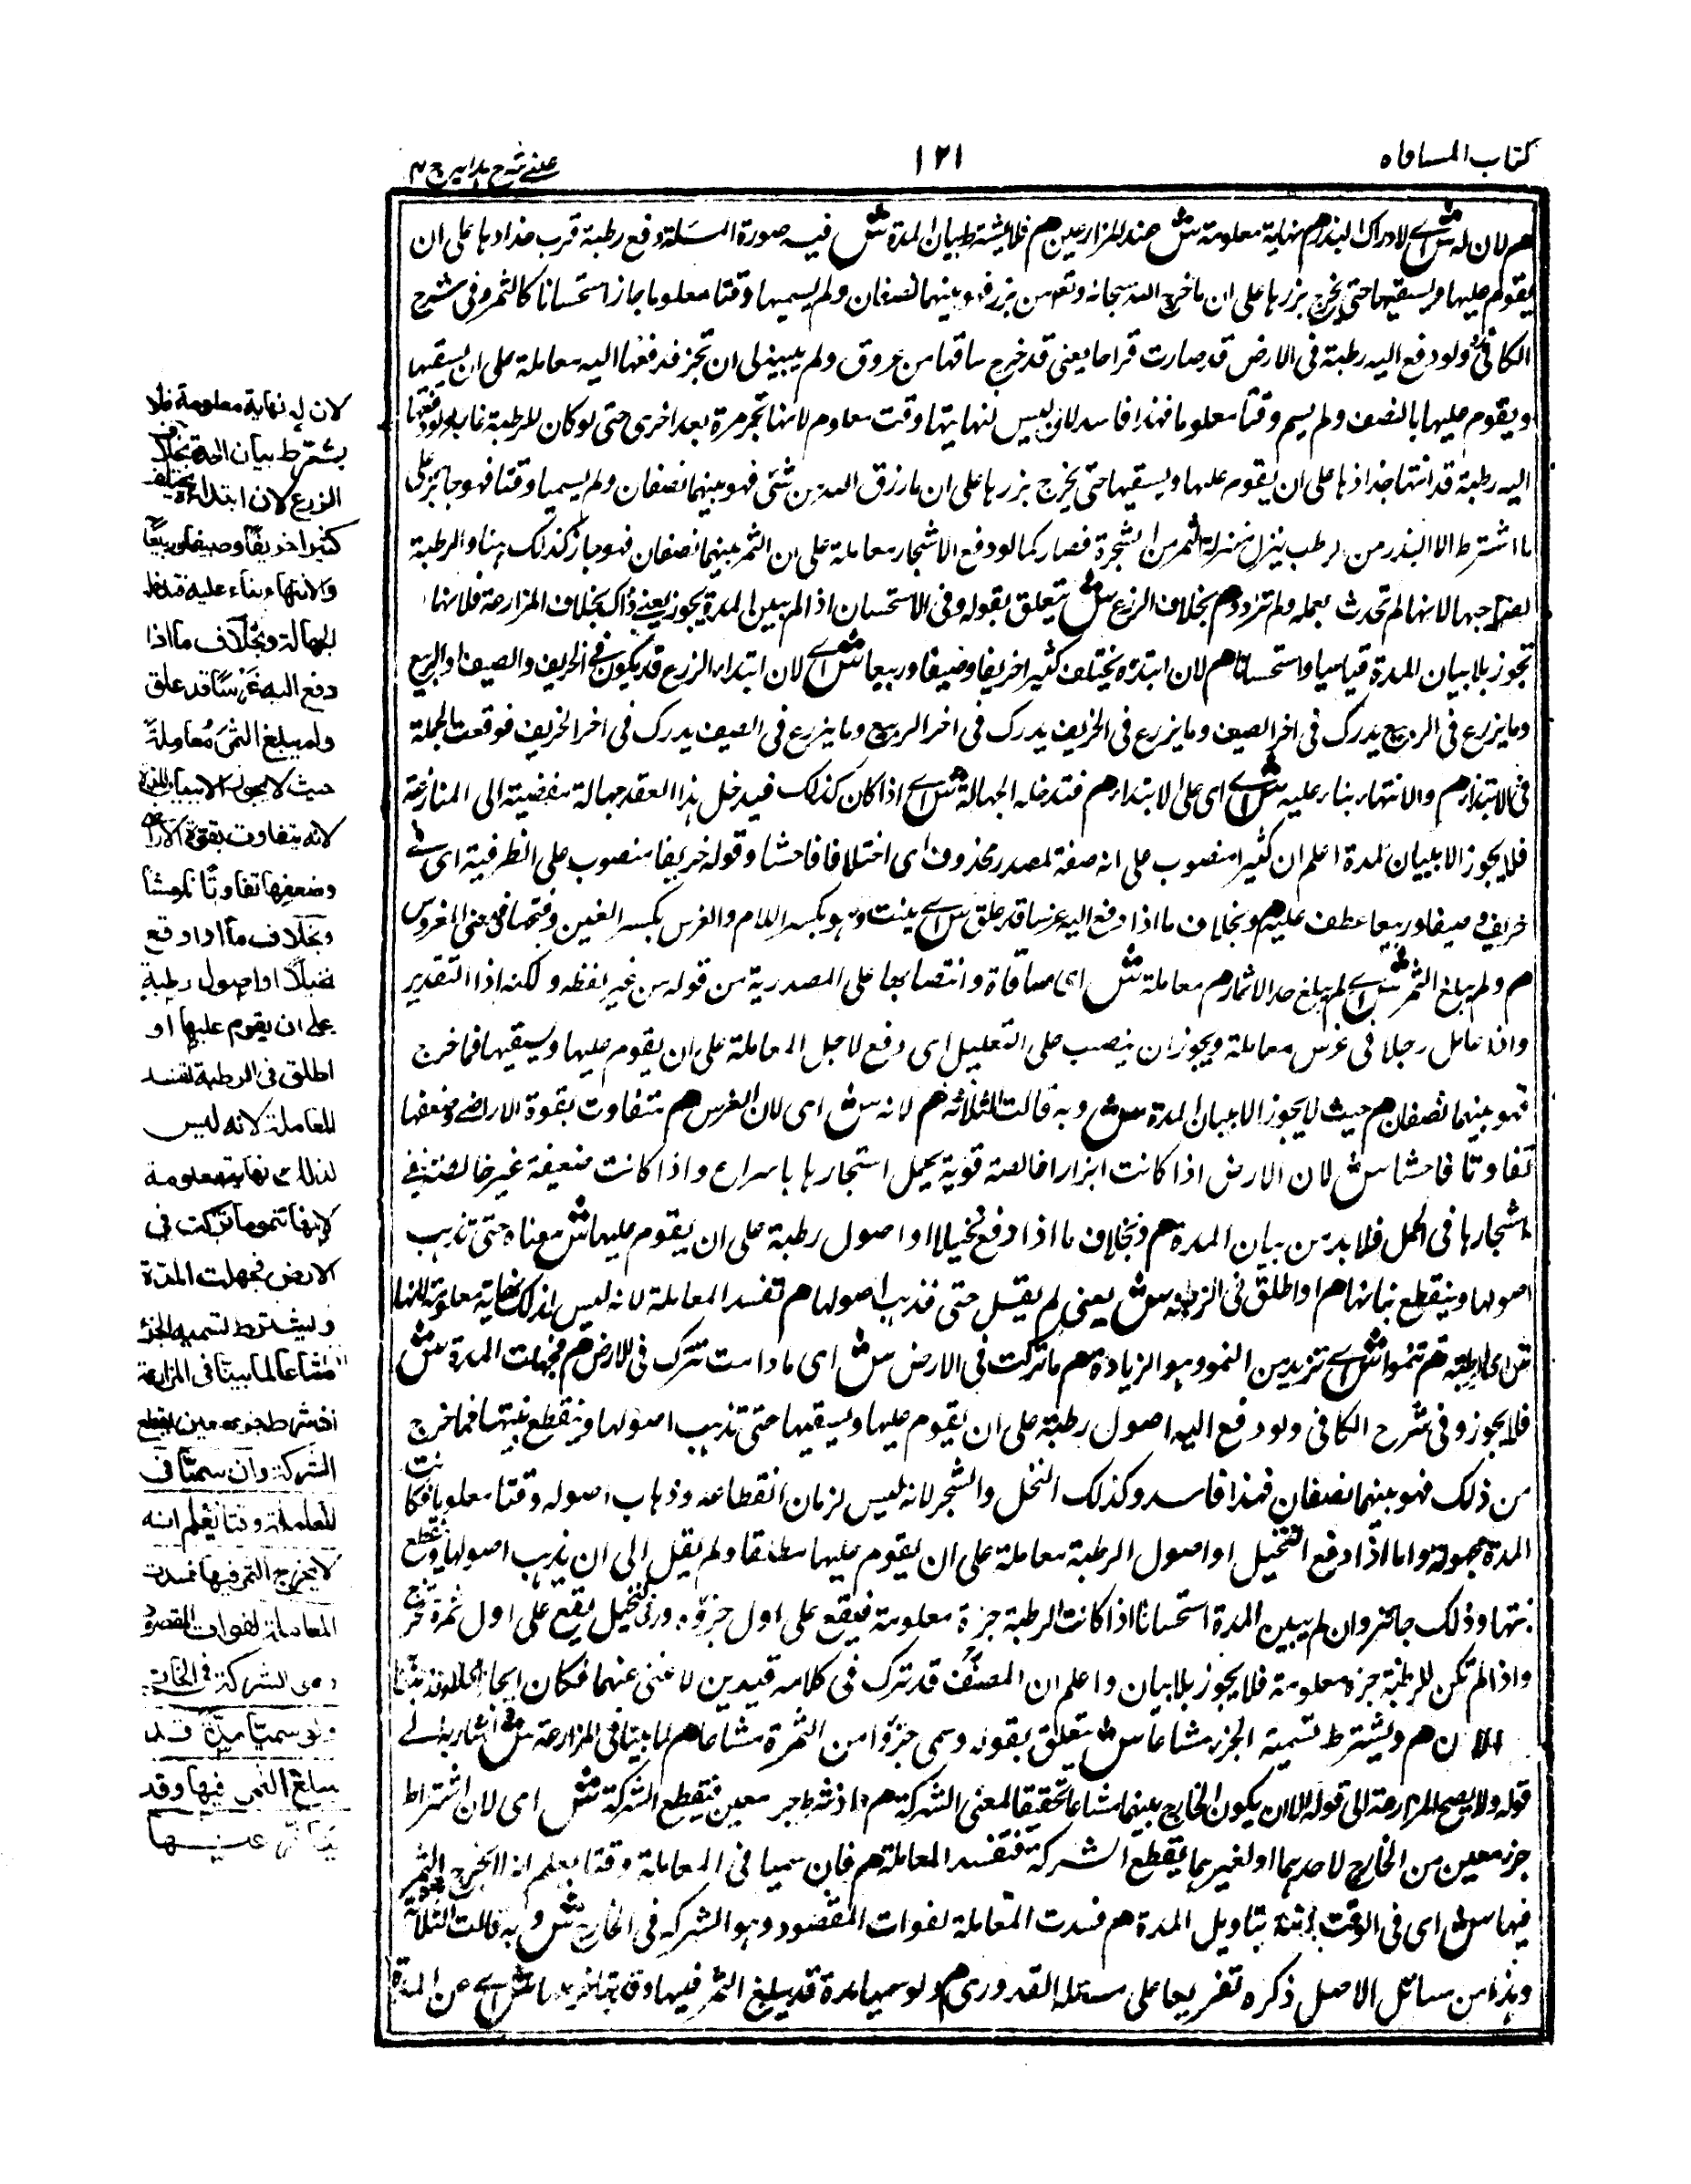 كتاب المساقاه
١٢١
عينى شرح هدايہ ج ٣
هم لان له ش اے لادراك البذر هم نهاية معلومة ش عند المزارعين هم فلا يشترط بيان المدة ش فيه صورة المسئلة دفع رطبة قرب جذاذها على ان
يقوم عليها ويسقيها حتى يخرج بزرها على ان ما خرج الله سبحانه وتعه من بزر فهو بينهما نصفان ولم يسميها وقتا معلوما جاز استحسانا كالثمر وفى شرح
الكافى ولو دفع اليه رطبة فى الارض قد صارت قراحا يعنى قد خرج ساقها من عروق ولم يبينه الى ان تجز فدفعها اليه معاملة على ان يسقيها
ويقوم عليها بالنصف ولم يسم وقتا معلوما فهذا فاسد لان ليس لنهايتها وقت معلوم لانها تجز مرة بعد اخرى حتى لو كان للرطبة غاية ولو دفعها
اليه رطبة قد انتها جذاذها على ان يقوم عليها ويسقيها حتى يخرج بزرها على ان ما رزق الله من شئى فهو بينهما نصفان ولم يسميا وقتا فهو جائز على
ما اشترط الا البذر من الرطب ينزل منزلة الثمر من الشجرة فصار كما لو دفع الاشجار معاملة على ان الثمر بينهما نصفان فهو جاز كذلك هنا والرطبة
لصاحبها لانها لم تحدث بعمله ولم تزدد هم بخلاف الزرع ش يتعلق بقوله وفى الاستحسان اذا لم يبين المدة يجوز يعنے ذاك بخلاف المزارعة فلانها
تجوز بلا بيان المدة قياسيا واستحسانا هم لان ابتدءه يختلف كثيرا خريفا وضيفا وربيعا ش اے لان ابتداء الزرع قد يكون فى الخريف والصيف او الربيع
وما يزرع فى الربيع يدرك فى اخر الصيف وما يزرع فى الخريف يدرك فى اخر الربيع وما يزرع فى الصيف يدرك فى اخر الخريف فوقعت الجملة
فى الابتداء هم والانتهاء بناء عليه ش اے اى على الابتداء هم فتدخله الجهالة ش اے اذا كان كذلك فيدخل هذا العقد جهالة مفضية الى المنازعة
فلا يجوز الا ببيان المدة اعلم ان كثيرا منصوب على انه صفة لمصدر محذوف اى اختلافا فاحشا وقوله خريفا منصوب على الظرفية اى فے
خريف وصيفا وربيعا عطف عليه هم وبخلاف ما اذا دفع اليه غرسا قد علق ش اے ينبت وهو بكسر اللام والغرس بكسر الغين وفتحها فى معنى المغروس
هم ولم يبلغ الثمر ش اے لم يبلغ حد الاثمار هم معاملة ش اى مساقاة وانتصابها على المصدرية من قوله من غير لفظه ولكنه اذا التقدير
واذا عامل رجلا فى غرس معاملة ويجوز ان ينصب على التعليل اى دفع لاجل المعاملة على ان يقوم عليها ويسقيها فما خرج
فهو بينهما نصفان هم حيث لا يجوز الا ببيان المدة ش وبه قالت الثلاثة هم لانه ش اى لان الغرس هم تتفاوت بقوة الاراضے وضعفها
تفاوتا فاحشا ش لان الارض اذا كانت ابزارا خالصة قوية يحمل اشجارها باسراع واذا كانت ضعيفة غير خالصة فے
اشجارها فى الحمل فلا بد من بيان المدة هم وبخلاف ما اذا دفع نخيلا او اصول رطبة على ان يقوم عليها ش معناه حتى تذهب
اصولها وينقطع نباتها هم او اطلق فى الرطبة ش يعنى لم يقل حتى تذهب اصولها هم تفسد المعاملة لانه ليس لذلك نهاية معلومة لانها
ش اى الرطبة هم تنموا ش اے تزيد من النمو وهو الزيادة هم ما تركت فى الارض ش اى ما دامت تترك فى الارض هم فجهلت المدة ش
فلا يجوز وفى شرح الكافى ولو دفع اليه اصول رطبة على ان يقوم عليها ويسقيها حتى تذهب اصولها وينقطع نبتها فما خرج
من ذلك فهو بينهما نصفان فهذا فاسد وكذلك النخل والشجر لانه ليس لزمان انقطاعه وذهاب اصوله وقتا معلوما فكانت
المدة مجهولة واما اذا دفع النخيل او اصول الرطبة معاملة على ان يقوم عليها مطلقا ولم يقل الى ان يذهب اصولها وينقطع
نبتها وذلك جائز وان لم يبين المدة استحسانا اذا كانت الرطبة جزة معلومة فيقع على اول جزة وفى النخيل يقع على اول ثمرة تخرج
واذا لم تكن للرطبة جزة معلومة فلا يجوز بلا بيان واعلم ان المصنف قد ترك فى كلامه قيدين لا غنى عنهما فكان ايجازا
الان هم ويشترط تسمية الجزء مشاعا ش يتعلق بقوله وسمى جزؤا من الثمرة مشاعا هم لما بينا فى المزارعة ش اشار به الے
قوله ولا يصح المزارعة الى قوله الا ان يكون الخارج بينهما مشاعا تحقيقا لمعنى الشركة هم اذ شرط جزء معين فيقطع الشركة ش اى لان اشتراط
جزء معين من الخارج لاحدهما او لغيرهما يقطع الشركة فتفسد المعاملة هم فان سميا فى المعاملة وقتا يعلم انه لا يخرج الثمر
فيها ش اى فى الوقت انثه بتاويل المدة هم فسدت المعاملة لفوات المقصود وهو الشركه فى الخارج ش وبه قالت الثلاثة
وهذا من مسائل الاصل ذكره تفريعا على مسئلة القدورى هم ولو سميا مدة قد يبلغ الثمر فيها وقد يتاخر عنها ش اے عن المدة
لان له نهاية معلومة فلا
يشترط بيان المدة بخلاف
الزرع لان ابتداءه يختلف
كثيرا خريفًا وصيفا وربيعًا
والانتهاء بناء عليه فتدخله
الجهالة وبخلاف ما اذا
دفع اليه غَرْسًا قد علق
ولم يبلغ الثمَر مُعامِلةً
حيث لا يجوز الا ببيان المدة
لانه يتفاوت بقوة الاراضى
وضعفها تفاوتًا فاحشًا
وبخلاف ما اذا دفع
نخيلا او اصول رطبةٍ
على ان يقوم عليها او
اطلق فى الرطبة تفسد
المعاملة لانه ليس
لذلك نهاية معلومة
لانها تنمو ما تركت فى
الارض فجهلت المدة
ويشترط تسمية الجزء
مشاعا لما بينا فى المزارعة
اذ شرط جزء معين يقطع
الشركة وان سميّا فى
المعاملة وقتا يُعْلَم انه
لا يخرج الثمر فيها فسدت
المعاملة لفوات المقصود
وهى الشركة فى الخارج
ولو سميّا مدّة قد
يبلغ الثمر فيها وقد
يتأخّر عنها